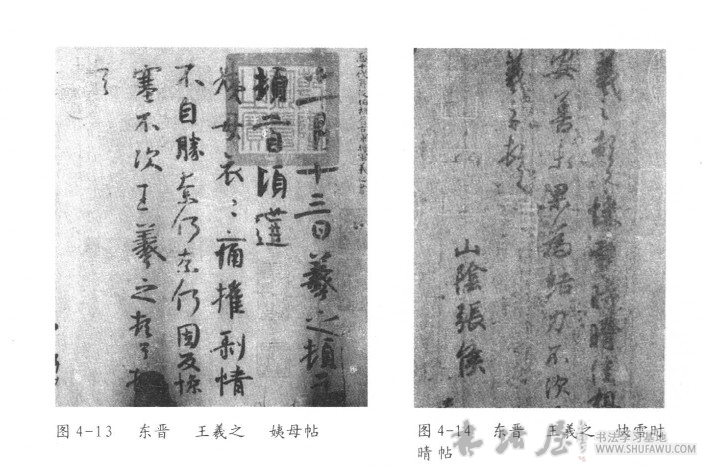 一月十三日羲之頓首
頓首頃遘
姨母哀哀痛摧剥情
不自勝奈何奈何因反慘
塞不次王羲之頓首頓
首
图4-13 东晋 王羲之 姨母帖
羲之頓首快雪時晴佳想
安善未果為結力不次
羲之頓首
山陰張侯
图4-14 东晋 王羲之 快雪时
晴帖
书法屋
书法学习基地
WWW.SHUFAWU.COM